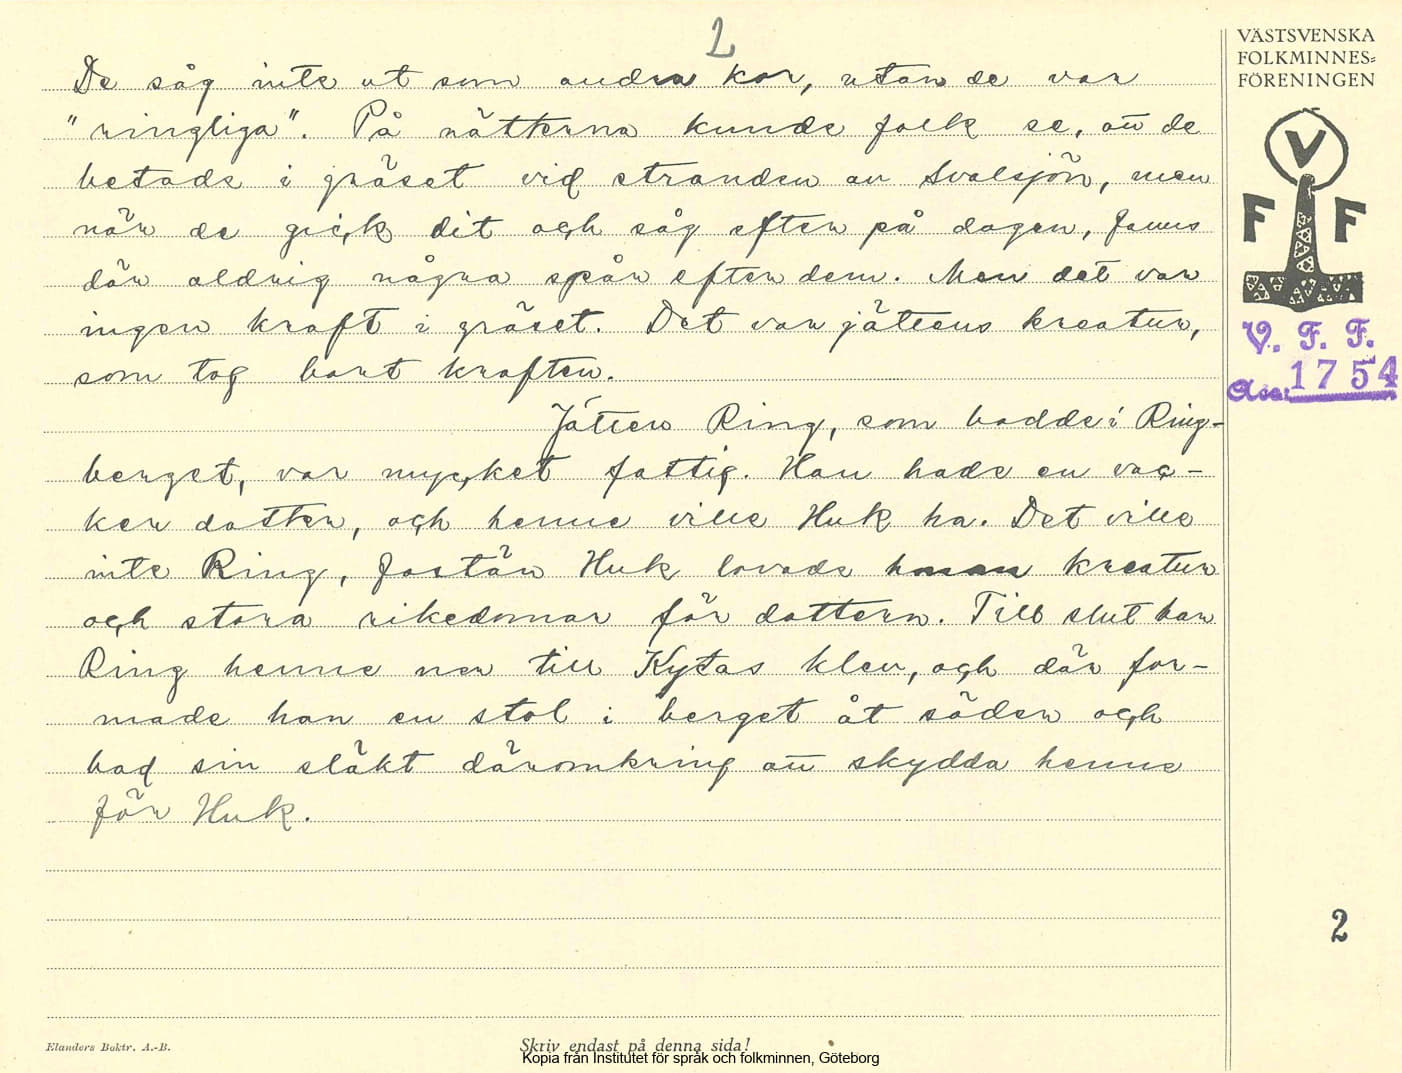 2
De såg inte ut som andra kor, utan de var
"ringliga". På nätterna kunde folk se, att de
betade i gräset vid stranden av Svalsjön, men
när de gick dit och såg efter på dagen, fanns
där aldrig några spår efter dem. Men det var
ingen kraft i gräset. Det var jättens kreatur,
som tog bort kraften.
Jätten Ring, som bodde i Ring-
berget, var mycket fattig. Han hade en vac-
ker dotter, och henne ville Huk ha. Det ville
inte Ring, fastän Huk lovade honom kreatur
och stora rikedomar för dottern. Till slut bar
Ring henne ner till Kytas klev, och där for-
made han en stol i berget åt söder och
bad sin släkt däromkring att skydda henne
för Huk.
VÄSTSVENSKA
FOLKMINNES-
FÖRENINGEN
V
F F
V. F. F.
Acc. 1754
2
Elanders Boktr. A.-B.
Skriv endast på denna sida!
Kopia från Institutet för språk och folkminnen, Göteborg